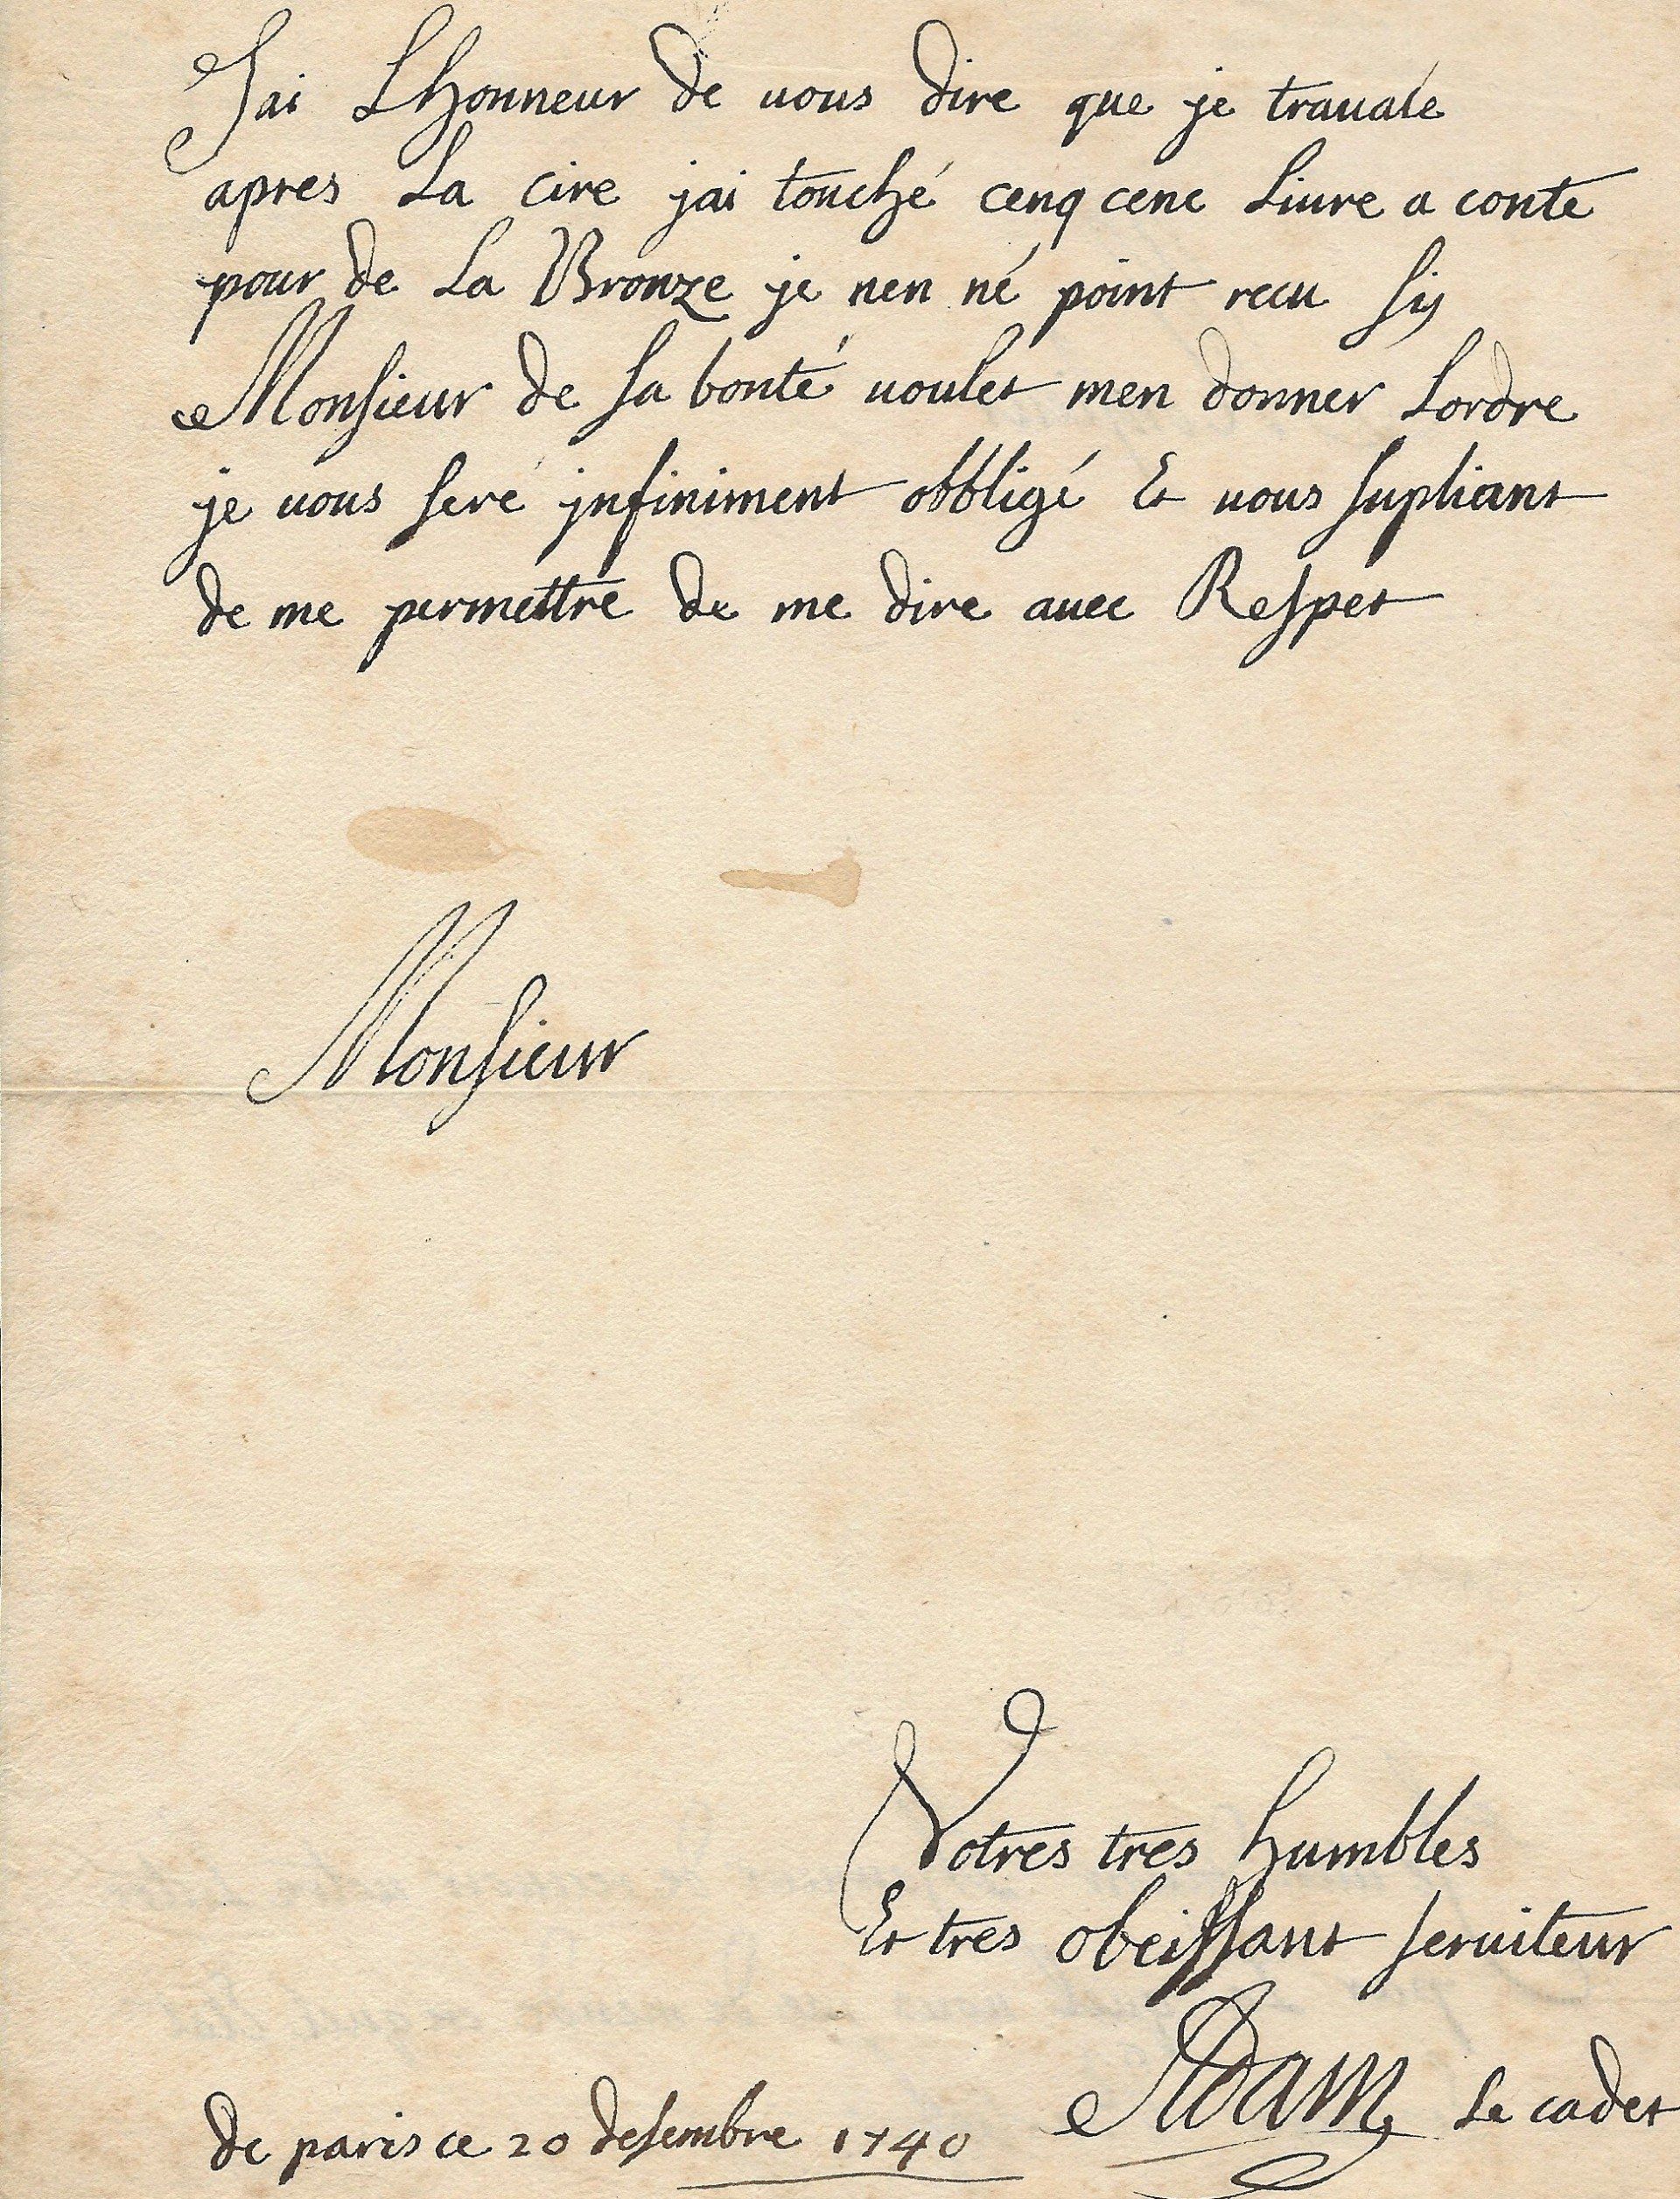 Jai Lhonneur de vous dire que je travale
apres La cire jai touché cenq cenc Livre a conte
pour de La Bronze je nen né point recu sy
Monsieur de sa bonté voulet men donner Lordre
je vous seré jnfiniment obbligé Et vous supliant
de me permettre de me dire avec Respet
Monsieur
Votres tres humbles
Et tres obeissant serviteur
Adam Le cadet
de paris ce 20 desembre 1740